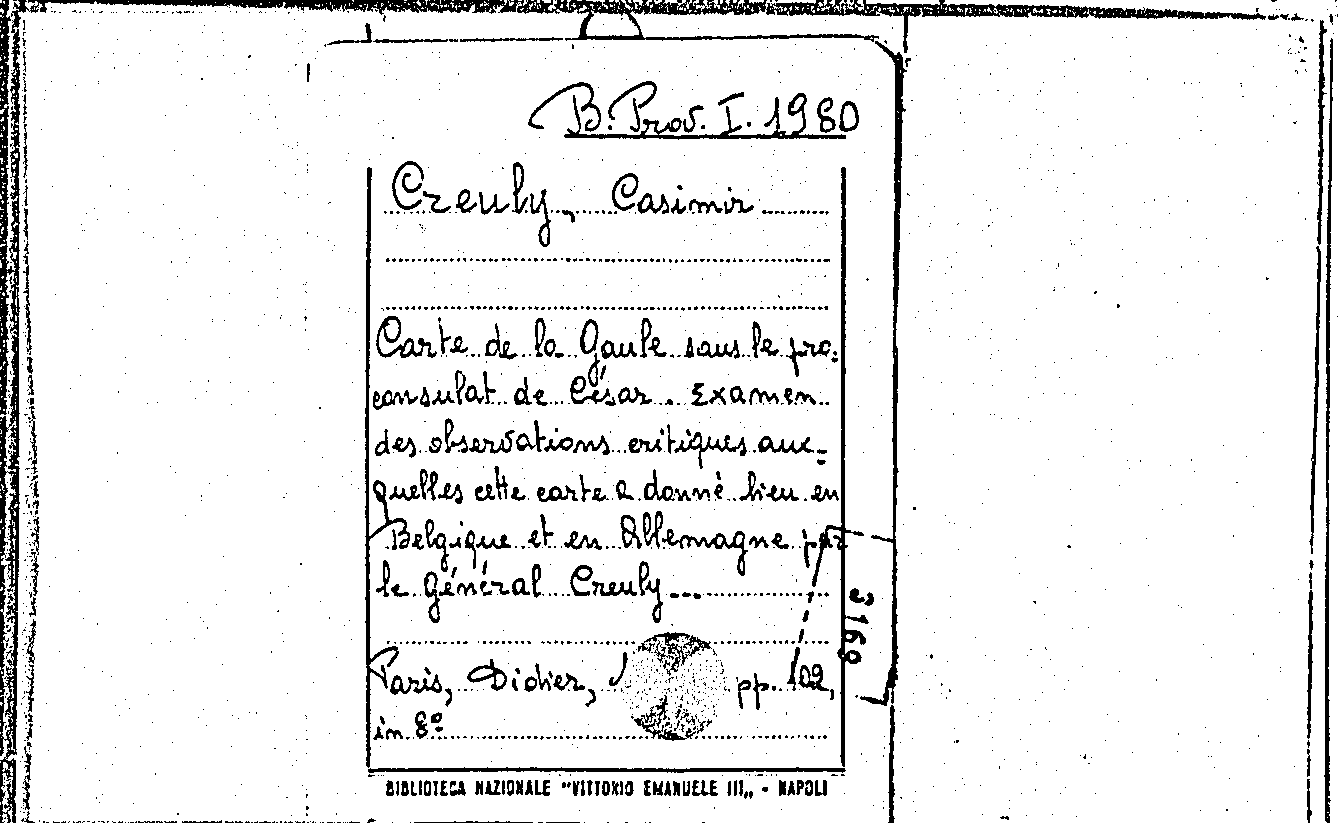 B. Prov. I. 1980
Creuly, Casimir
Carte de la Gaule sous le pro-
consulat de César. Examen
des observations critiques aux-
quelles cette carte a donné lieu en
Belgique et en Allemagne par
le Général Creuly...
Paris, Didier, pp. 102,
in 8º
BIBLIOTECA NAZIONALE "VITTORIO EMANUELE III„ - NAPOLI